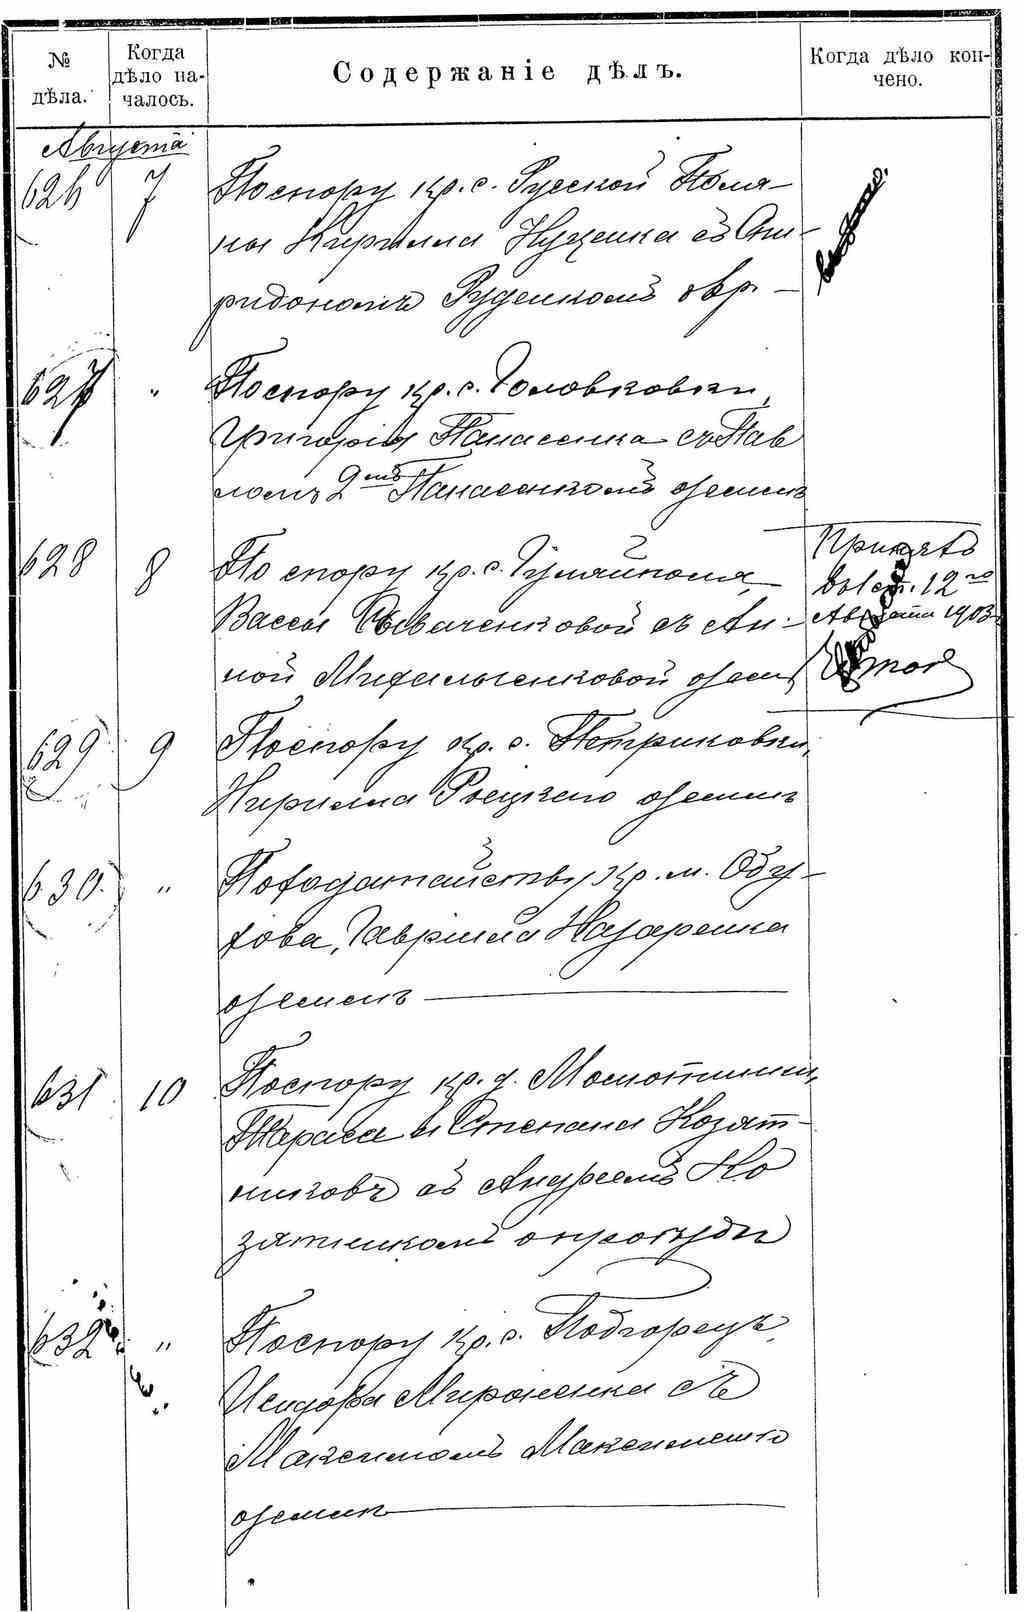 № дѣла.
Когда дѣло на-
чалось.
Содержаніе дѣлъ.
Когда дѣло кон-
чено.
Августа
626 7 По спору кр. с. Русской Поля-
ны Кирилла Куценка съ Спи-
ридономъ Руденкомъ
627 " По спору кр. с. Головковки,
Григорія Панасенка съ Пав
ломъ 2мъ Панасенкомъ о земли
628 8 По спору кр. с. Гуляйполя,
Вассы съ Ан-
ной Михальченковой о земл
Принято
12го
Августа 1903 г.
629 9 По спору кр. с. Петриковки,
Кирилла о земли
630. " По ходатайству кр. м. Обу-
хова, Гавріила Назаренка
о земли
631 10 По спору кр. д.
Тараса и Степана Козят-
никовъ съ Андреемъ Ко
зятникомъ
632 " По спору кр. с. Подгорецъ,
Исидора Мироненка съ
Максимомъ Максименко
о земли